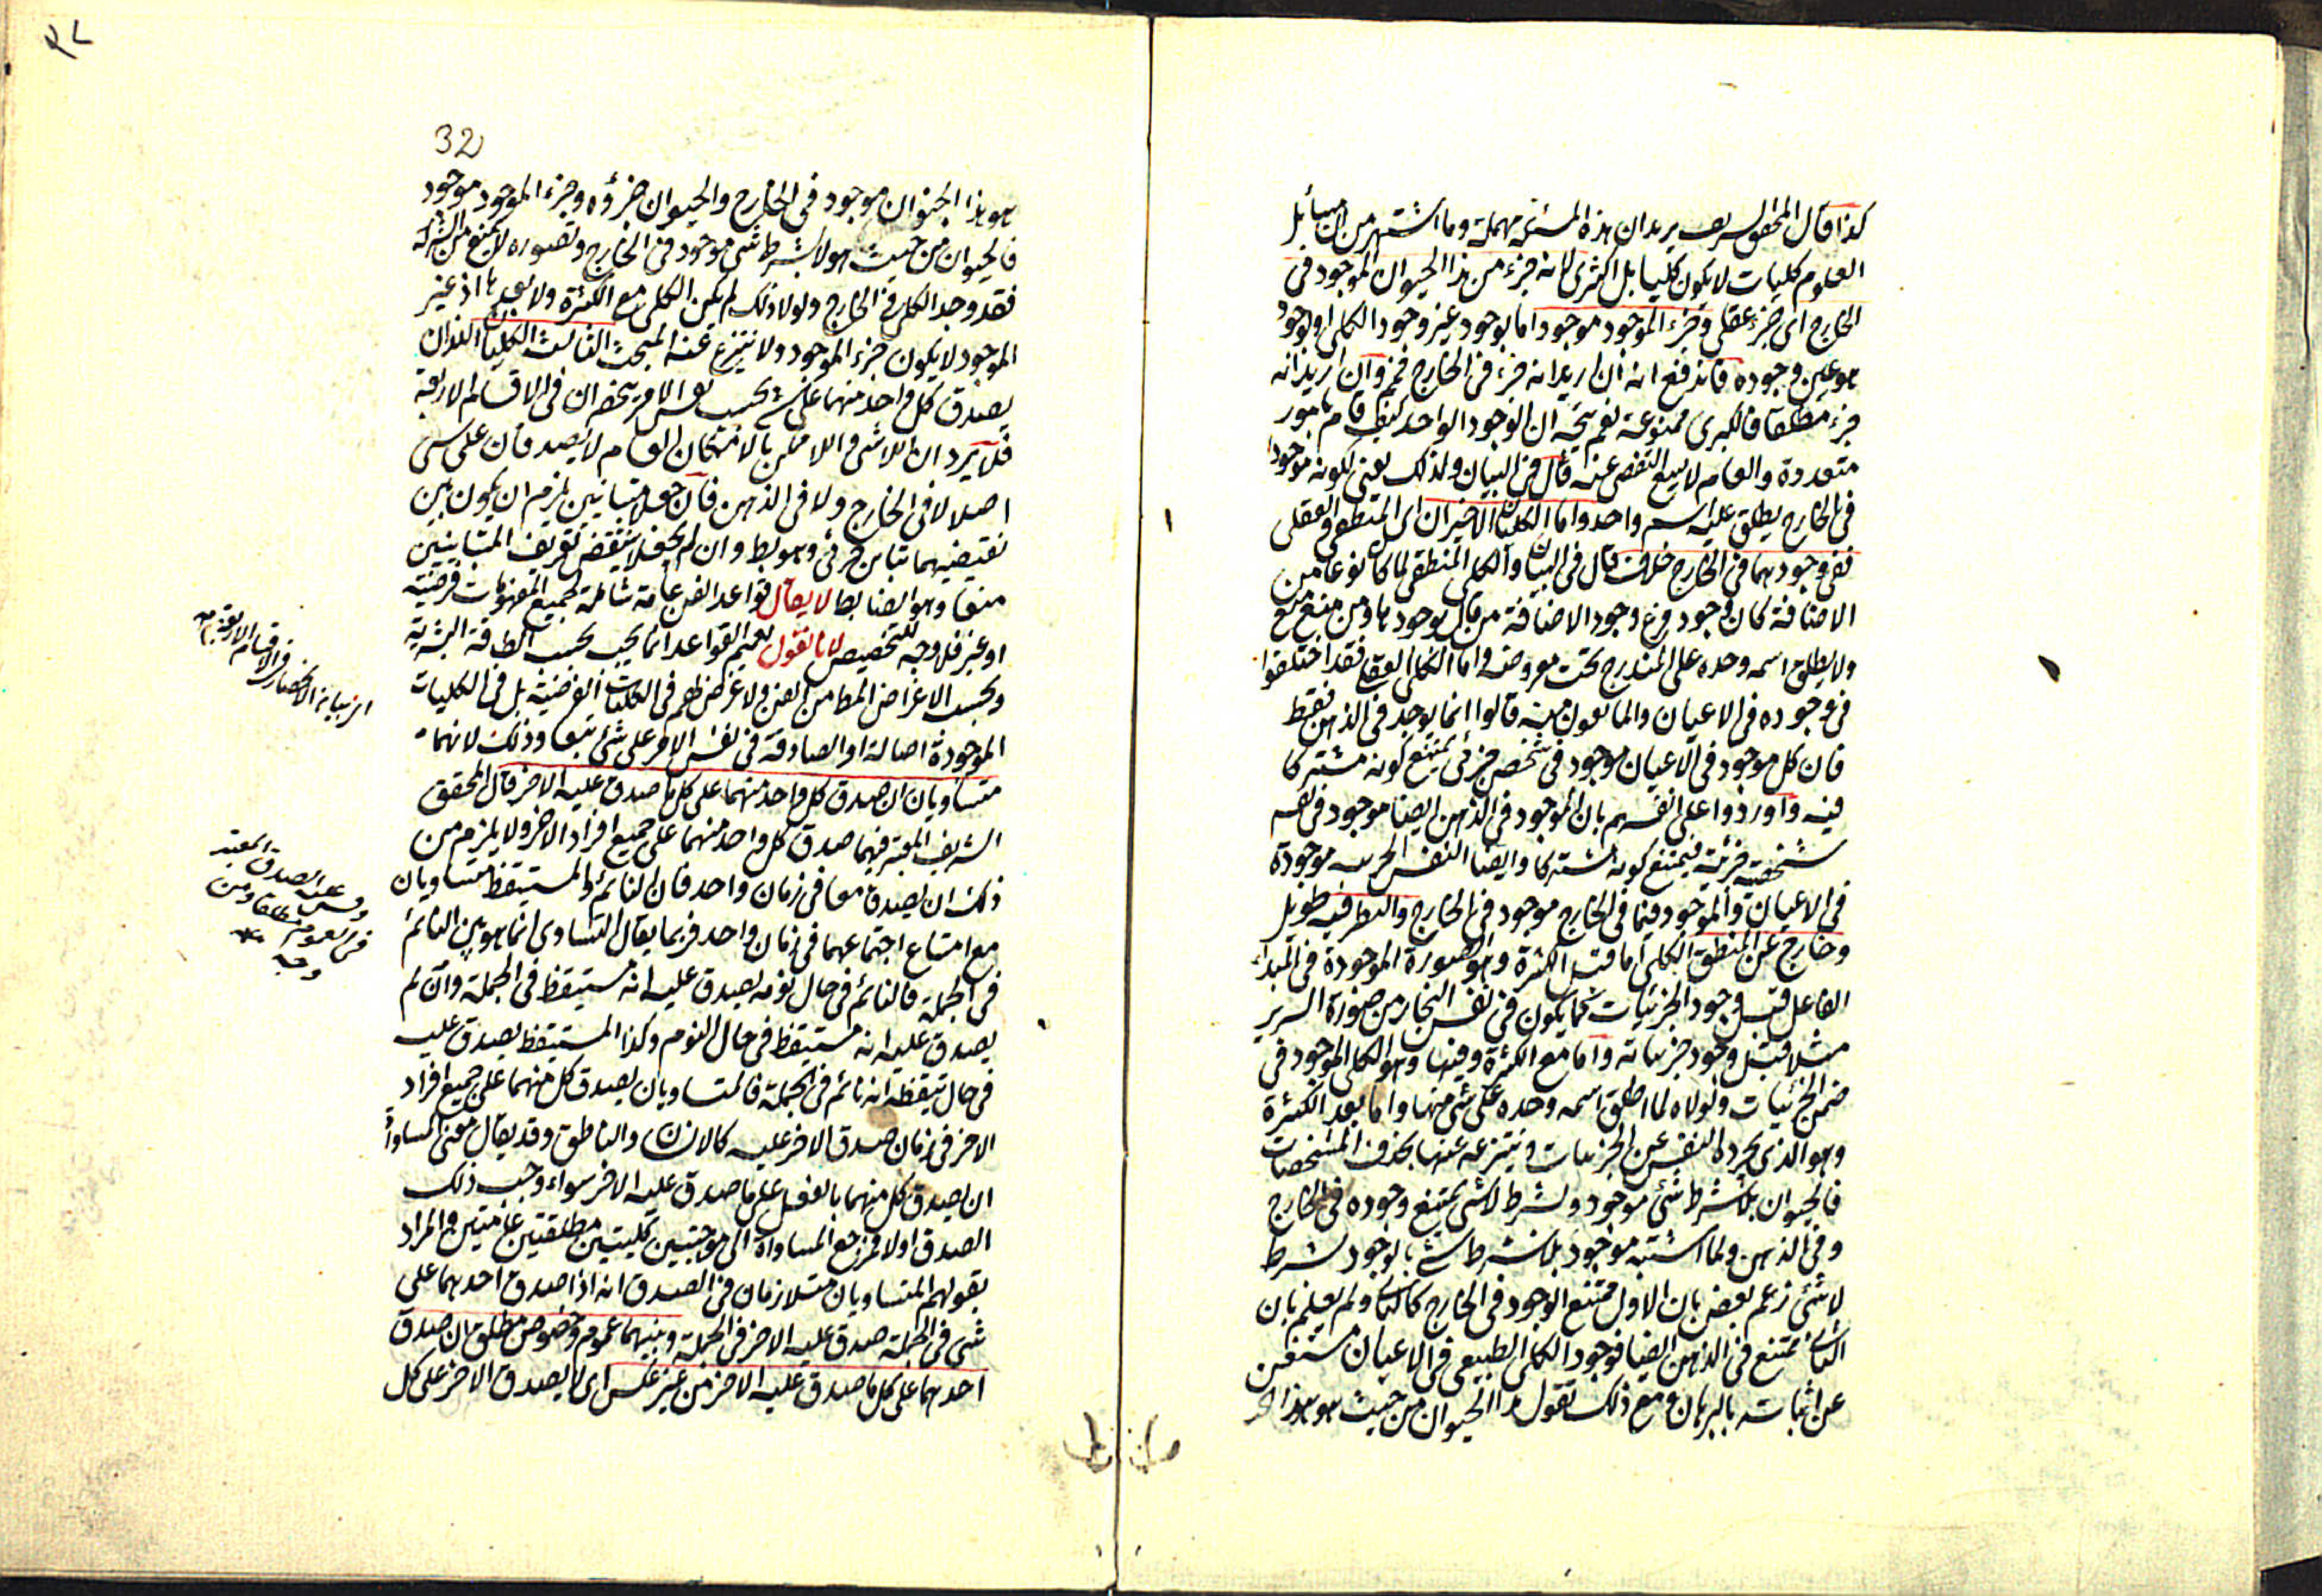 كذا قال المحقق الشريف يريد ان هذه المسئلة مهملة وما اشتهر من ان مسائل
العلوم كليات لا يكون كليا بل اكثرى لانه جزء من هذا الحيوان الموجود فى
الخارج اى جزء عقلى وجزء الموجود موجود اما بوجود غير وجود الكلى او بوجود
هو عين وجوده فاندفع انه ان اريد انه جزء فى الخارج فمم وان اريد انه
جزء مطلقا فالكبرى ممنوعة نعم يتجه ان الوجود الواحد كيف قام بامور
متعددة والعام لا يسع التفصى عنه قال فى البيان ولذلك يعنى لكونه موجودا
فى الخارج يطلق عليه اسم واحد واما الكليان الاخيران اى المنطقى والعقلى
ففى وجودهما فى الخارج خلاف قال فى البيان والكلى المنطقى لما كان نوعا من
الاضافة كان وجوده فرع وجود الاضافة من قال بوجودها ومن منع منع
ولا يطلق اسمه وحده على المندرج تحت معروضه واما الكلى العقلى فقد اختلفوا
فى وجوده فى الاعيان والمانعون منه قالوا انما يوجد فى الذهن فقط
فان كل موجود فى الاعيان موجود فى شخص جزئى يمتنع كونه مشتركا
فيه واوردوا على انفسهم بان الموجود فى الذهن ايضا موجود فى نفس
شخصية جزئية فيمتنع كونه مشتركا وايضا النفس الجزئية موجودة
فى الاعيان والموجود فيما فى الخارج موجود فى الخارج والنظر فيه طويل
وخارج عن المنطق الكلى اما قبل الكثرة وهو الصورة الموجودة فى المبدأ
الفاعل قبل وجود الجزئيات كما يكون فى نفس النجار من صورة السرير
مثلا قبل وجود جزئياته واما مع الكثرة وفيها وهو الكلى الموجود فى
ضمن الجزئيات ولولاه لما اطلق اسمه وحده على شئ منها واما بعد الكثرة
وهو الذى يجرده النفس عن الجزئيات وينتزعه عنها بحذف المشخصات
فالحيوان بلا شرط شئ موجود وبشرط لا شئ يمتنع وجوده فى الخارج
وفى الذهن ولما اشتبه موجود بلا شرط شئ بالوجود بشرط
لا شئ زعم بعض بان الاول ممتنع الوجود فى الخارج كالثانى ولم يعلم بان
الثانى ممتنع فى الذهن ايضا فوجود الكلى الطبيعى فى الاعيان مستغن
عن اثباته بالبرهان ومع ذلك نقول الحيوان من حيث هو هذا
32
هو هذا الحيوان موجود فى الخارج والحيوان جزؤه وجزء الموجود موجود
فالحيوان من حيث هو لا بشرط شئ موجود فى الخارج وتصوره لا يمنع من الشركة
فقد وجد الكلى فى الخارج ولولا ذلك لم يكن الكلى مع الكثرة ولا بعدها اذ غير
الموجود لا يكون جزء الموجود ولا ينتزع عنه المبحث الثالث الكليان اللذان
يصدق كل واحد منهما على شئ بحسب نفس الامر ينحصران فى الاقسام الاربعة
فلا يرد ان اللاشئ واللاممكن بالامكان العام لا يصدقان على شئ
اصلا لا فى الخارج ولا فى الذهن فان جعلا متباينين يلزم ان يكون بين
نقيضيهما تباين جزئى وهو بط وان لم يجعلا ينتقض تعريف المتباينين
منعا وهو ايضا بط لا يقال قواعد الفن عامة شاملة لجميع المفهومات فرضية
او غير فلا وجه للتخصيص لانا نقول تعميم القواعد انما يجب بحسب الطاقة البشرية
وبحسب الاغراض المطلوبة من الفن ولا غرض لهم فى الكليات الفرضية بل فى الكليات
الموجودة اصالة او الصادقة فى نفس الامر على شئ تبعا وذلك لانهما
متساويان ان صدق كل واحد منهما على كل ما صدق عليه الاخر قال المحقق
الشريف المعتبر فيهما صدق كل واحد منهما على جميع افراد الاخر ولا يلزم من
ذلك ان يصدقا معا فى زمان واحد فان النائم والمستيقظ متساويان
مع امتناع اجتماعهما فى زمان واحد فربما يقال التساوى انما هو بين النائم
فى الجملة فالنائم فى حال نومه يصدق عليه انه مستيقظ فى الجملة وان لم
يصدق عليه انه مستيقظ فى حال النوم وكذا المستيقظ يصدق عليه
فى حال تيقظه انه نائم فى الجملة فالمتساويان يصدق كل منهما على جميع افراد
الاخر فى زمان صدق الاخر عليه كالانسان والناطق وقد يقال معنى المساواة
ان يصدق كل منهما بالفعل على ما صدق عليه الاخر سواء وجب ذلك
الصدق اولا فمرجع المساواة الى موجبتين كليتين مطلقتين عامتين والمراد
بقولهم المتساويان متلازمان فى الصدق انه اذا صدق احدهما على
شئ فى الجملة صدق عليه الاخر فى الجملة وبينهما عموم وخصوص مطلق ان صدق
احدهما على كل ما صدق عليه الاخر من غير عكس اى لا يصدق الاخر على كل
الانحصار فى الاقسام الاربعة
الصدق المعتبر
فى العموم مطلقا ومن
وجه